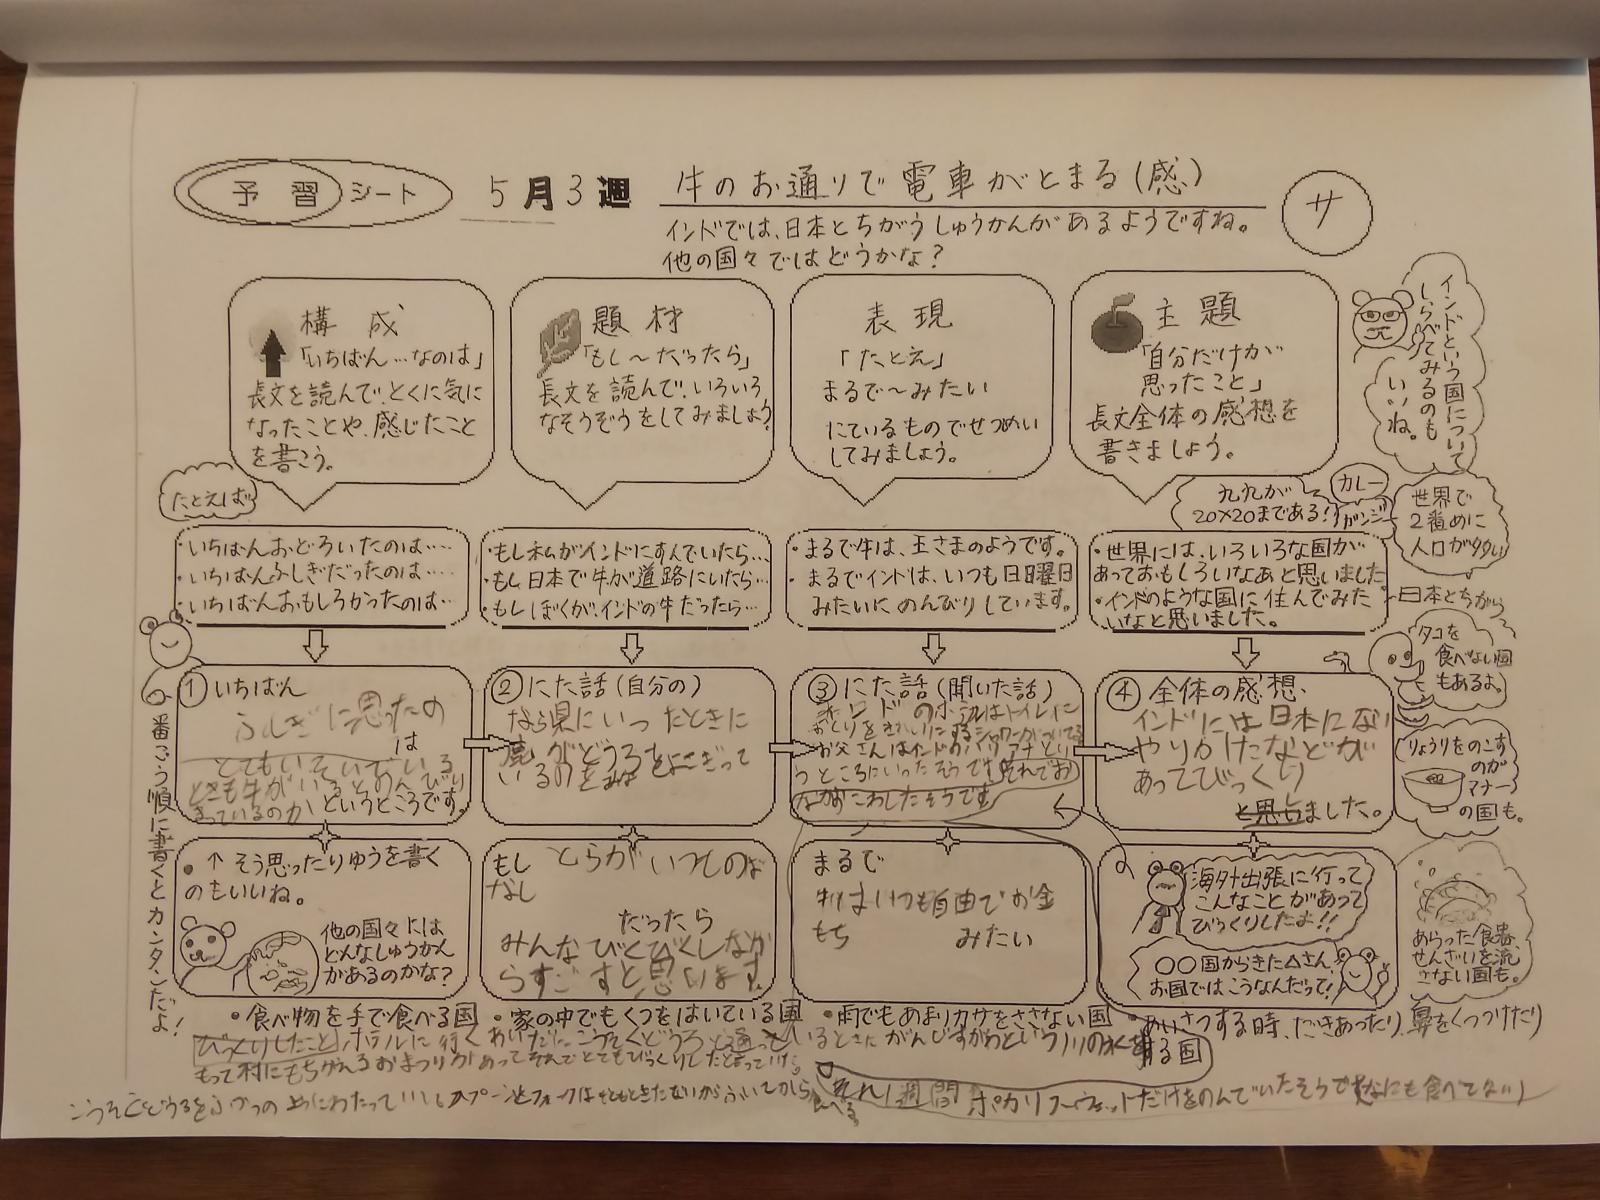 予習シート
5月3週
牛のお通りで電車がとまる(感)
サ
インドでは、日本とちがうしゅうかんがあるようですね。
他の国々ではどうかな?
構成
「いちばん…なのは」
長文を読んで、とくに気に
なったことや、感じたこと
を書こう。
題材
「もし〜だったら」
長文を読んで、いろいろ
なそうぞうをしてみましょう
表現
「たとえ」
まるで〜みたい
にているものでせつめい
してみましょう。
主題
「自分だけが
思ったこと」
長文全体の感想を
書きましょう。
インドという国について
しらべてみるのも
いいね。
たとえば
・いちばんおどろいたのは……
・いちばんふしぎだったのは……
・いちばんおもしろかったのは…
・もし私がインドにすんでいたら…
・もし日本で牛が道路にいたら…
・もしぼくが、インドの牛だったら…
・まるで牛は、王さまのようです。
・まるでインドは、いつも日曜日
みたいにのんびりしています。
九九が
20×20まである!
カレー
ガンジー
世界で
2番めに
人口が多い
・世界には、いろいろな国が
あっておもしろいなあと思いました
・インドのような国に住んでみた
いなと思いました。
日本とちがう
タコを
食べない国
もあるよ。
りょうりをのこす
のが
マナー
の国も。
あらった食器、
せんざいを流
さない国も。
番ごう順に書くとカンタンだよ!
①いちばん
ふしぎに思ったの
は
とてもいそいでいる
ときも牛がいるとのんびり
まっているのか というところです。
②にた話(自分の)
なら県にいったときに
鹿がどうろをよこぎって
いるのをみた
③にた話(聞いた話)
インドのホテルはトイレに
おしりをきれいにするシャワーがついてる
お父さんはインドの
うところにいったそうです それでお
なかをこわしたそうです
④全体の感想、
インドには日本にない
やりかたなどが
あってびっくり
と思いました。
・↑そう思ったりゆうを書く
のもいいね。
他の国々には
どんなしゅうかん
があるのかな?
もし とらがいつしのば
なし
だったら
みんなびくびくしなが
らすごすと思います。
まるで
牛はいつも自由でお金
もち みたい
海外出張に行って
こんなことがあって
びっくりしたよ!!
○○国からきた△さん、
お国ではこうなんだって!
・食べ物を手で食べる国 ・家の中でもくつをはいている国 ・雨でもあまりカサをささない国 ・あいさつする時、だきあったり、鼻をくっつけたり
する国
びっくりしたこと ホテルに行くあいだにこうそくどうろを通っているときにがんじすがわという川の水を
もって村にもちかえるおまつりがあってそれでとてもびっくりしたと言っていた。
こうそくどうろをふつうのようにわたっていいし スプーンとフォークはもともときたないからふいてから食べる
それ1週間ポカリスウェットだけをのんでいたそうでなにも食べてない